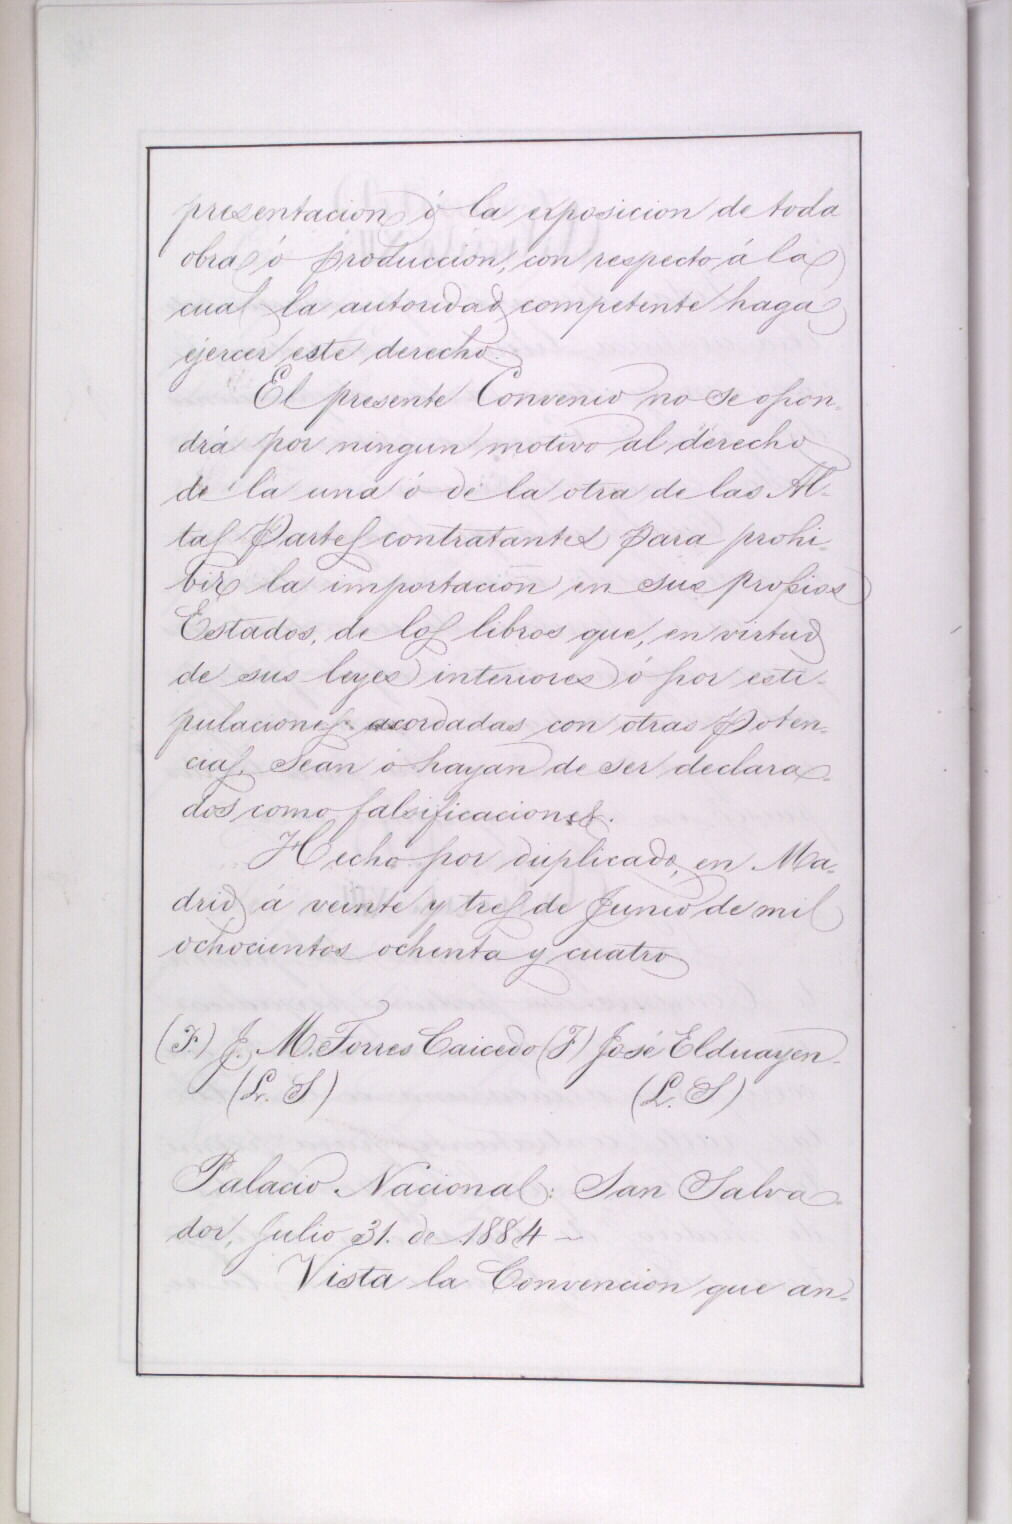 presentacion ó la exposicion de toda
obra ó produccion, con respecto á la
cual la autoridad competente haga
ejercer este derecho.
El presente Convenio no se opon-
drá por ningun motivo al derecho
de la una ó de la otra de las Al-
tas Partes contratantes para prohi-
bir la importacion en sus propios
Estados, de los libros que, en virtud
de sus leyes interiores ó por esti-
pulaciones acordadas con otras Poten-
cias, sean ó hayan de ser declara-
dos como falsificaciones.
Hecho por duplicado, en Ma-
drid á veinte y tres de Junio de mil
ochocientos ochenta y cuatro
(F.) J. M. Torres Caicedo (F) José Elduayen
(L. S) (L. S)
Palacio Nacional: San Salva-
dor, Julio 31. de 1884 —
Vista la Convencion que an-